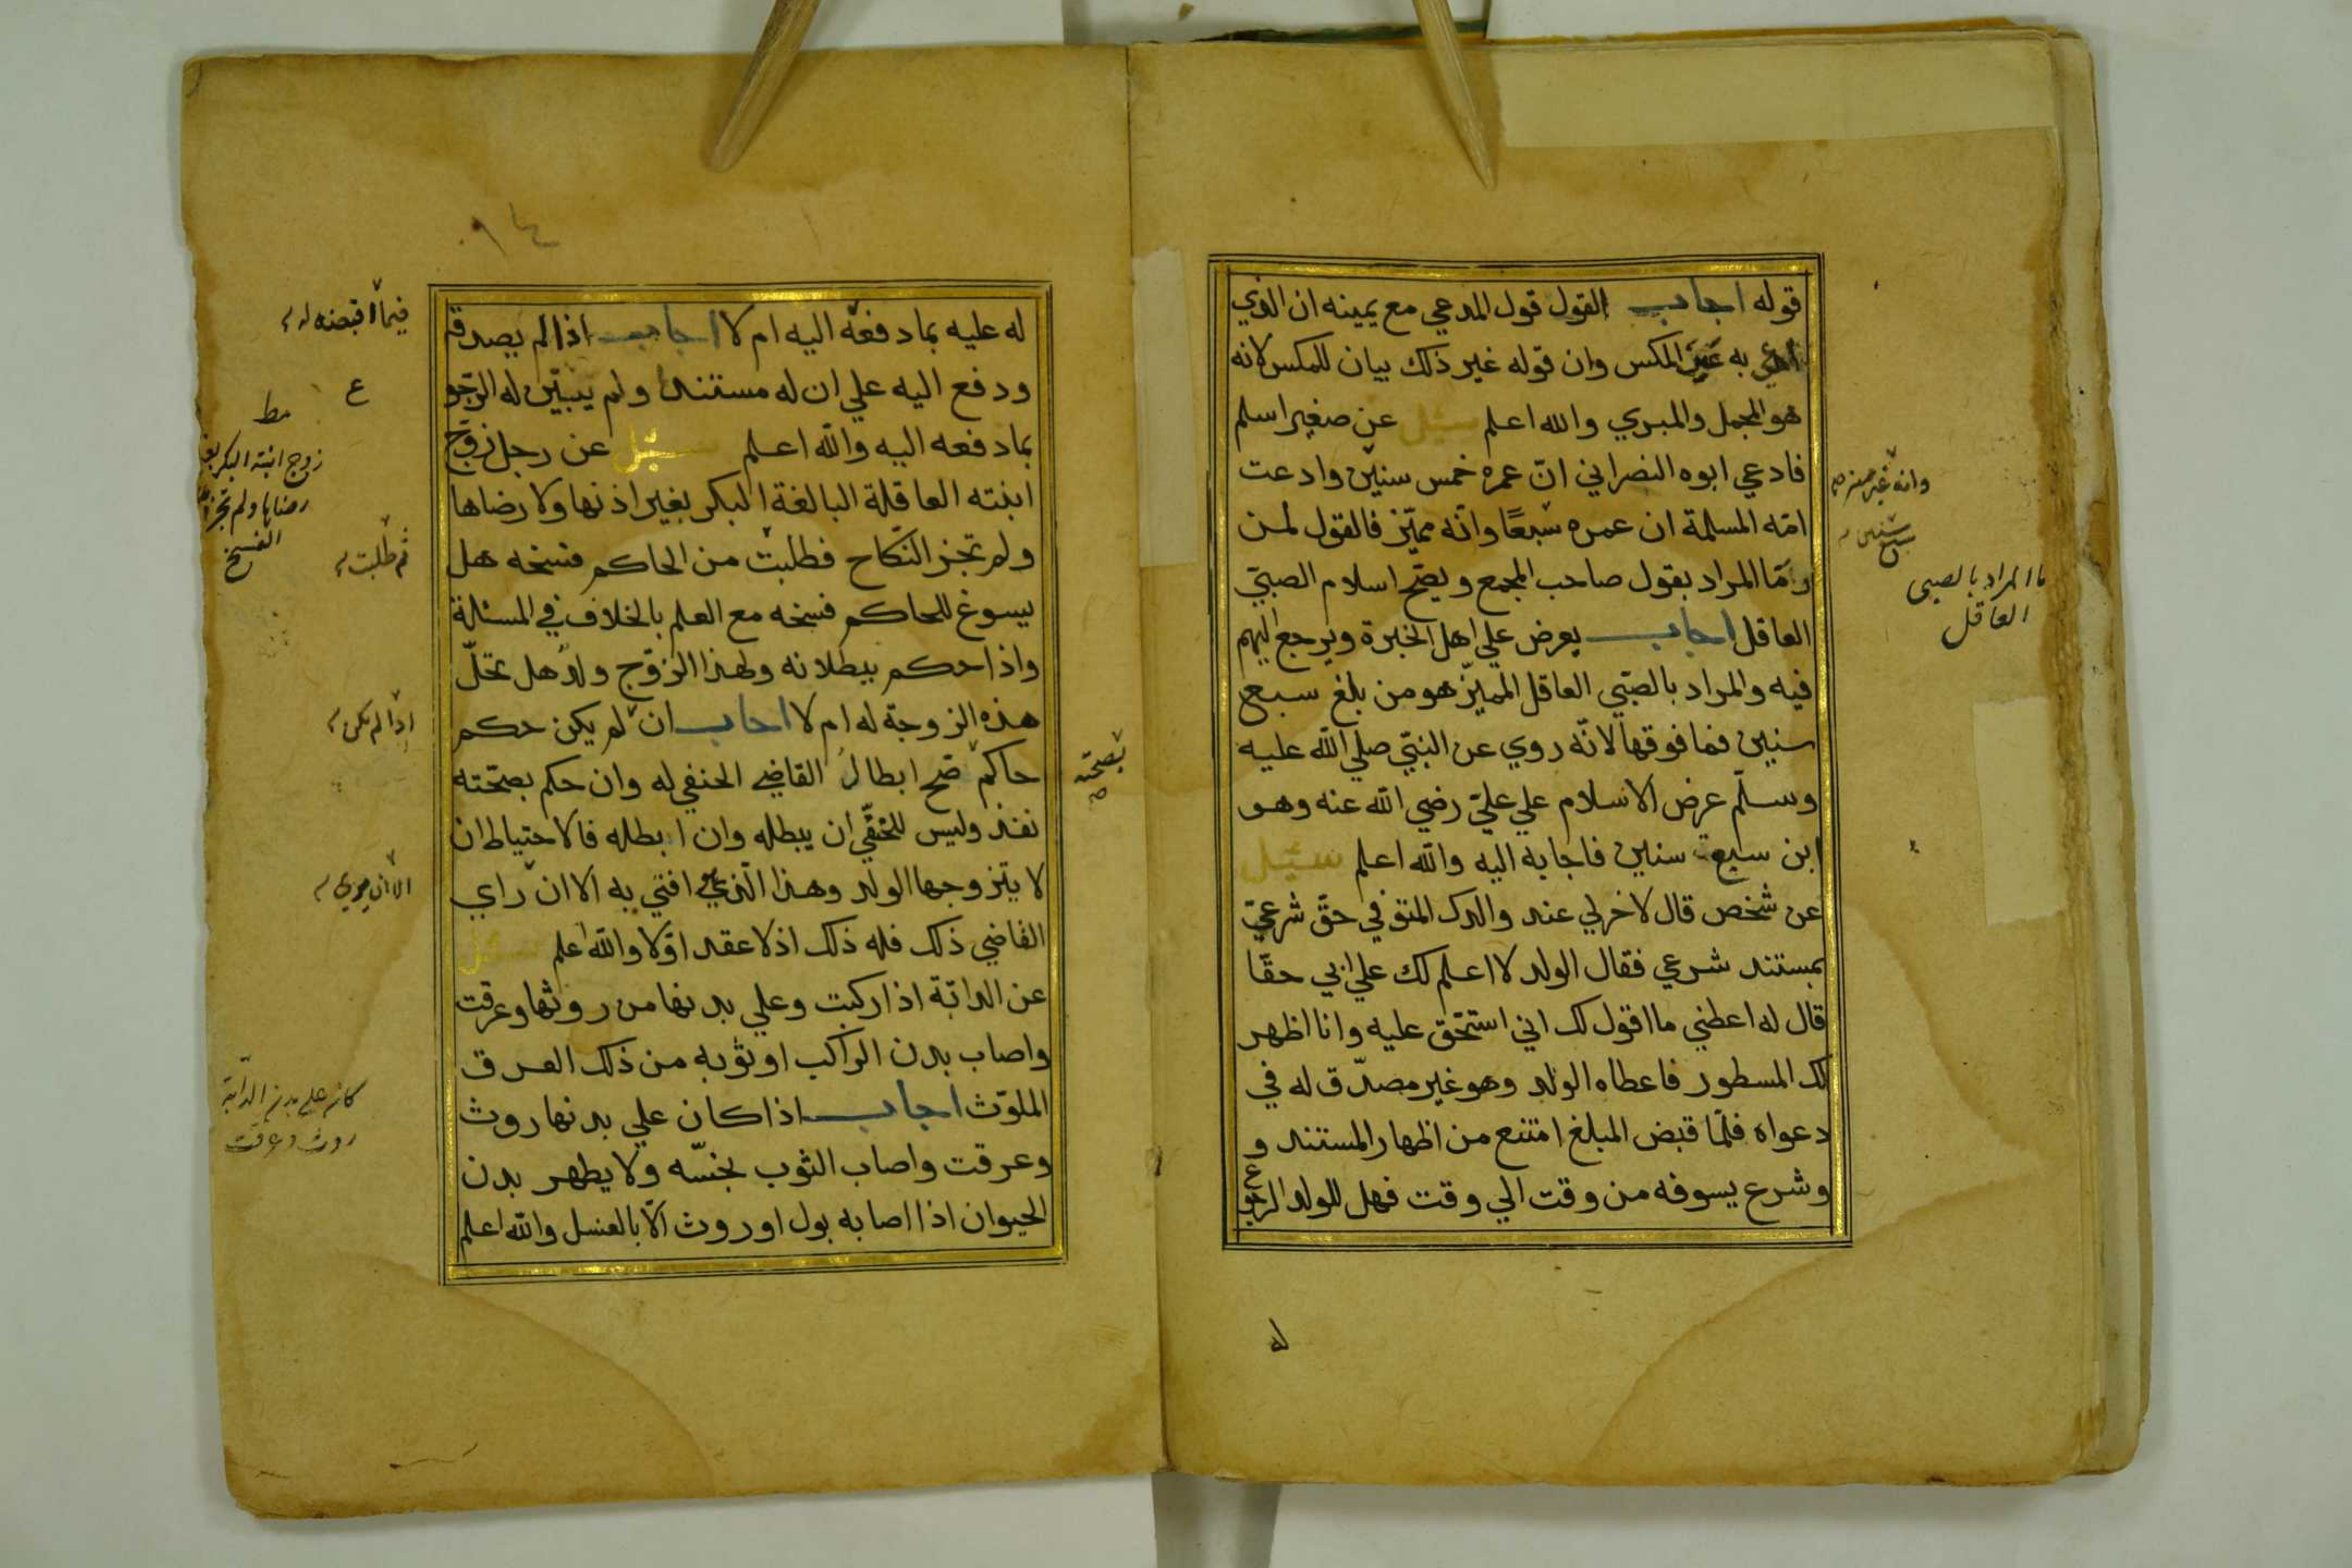 قوله اجاب القول قول المدعي مع يمينه ان الذي
ادعي به غير المكس وان قوله غير ذلك بيان للمكس لانه
هو المجمل والمبري والله اعلم سئل عن صغير اسلم
فادعي ابوه النصراني انّ عمره خمس سنين وادعت
امّه المسلمة ان عمره سَبعًا وانّه مميّز فالقول لمن
وَمَا المراد بقول صاحب المجمع ويصّح اسلام الصبيّ
العاقل اجاب يعرض علي اهل الخبرة ويرجع اليهم
فيه والمراد بالصبّي العاقل المميّز هو من بلغ سبع
سنين فما فوقها لانّه روي عن النبيّ صلي الله عليه
وسلّم عرض الاسلام علي عليّ رضي الله عنه وهو
ابن سبع سنين فاجابه اليه والله اعلم سئل
عن شخص قال لاخر لي عند والدك المتوفي حقّ شرعيّ
بمستند شرعي فقال الولد لا اعلم لك علي ابي حقّا
قال له اعطني ما اقول لك اني استحّق عليه وانا اظهر
لك المسطور فاعطاه الولد وهو غير مصدّق له في
دعواه فلّما قبض المبلغ امتنع من اظهار المستند و
وشرع يسوفه من وقت الي وقت فهل للولد الرجوع
له
وانه غير مميز صح
سبع سنين
ما المراد بالصبي
العاقل
له عليه بما دفعه اليه ام لا اجاب اذا لم يصدقه
ودفع اليه علي ان له مستندا ولم يبيّن له الرّجو
ع
بما دفعه اليه والله اعلم سئل عن رجل زوّج
ابنته العاقلة البالغة البكر بغير اذنها ولا رضاها
ولم تجز النّكاح فطلبت من الحاكم فسخه هل
يسوغ للحاكم فسخه مع العلم بالخلاف في المسئلة
واذا حكم ببطلانه ولهذا الزوّج ولد هل تحلّ
هذه الزوجة له ام لا اجاب ان لم يكن حكم
حاكم صّح ابطال القاضي الحنفي له وان حكم بصحّته
نفذ وليس للحنفّي ان يبطله وان ابطله فالاحتياط ان
لا يتزوجها الولد وهذا الّذي افتي به الا ان رّاي
القاضي ذلك فله ذلك اذ لا عقد اوّلا والله اعلم سئل
عن الدابّة اذا ركبت وعلي بدنها من روثها وعرقت
واصاب بدن الراكب او ثوبه من ذلك العرق
الملوّث اجاب اذا كان علي بدنها روث
وعرقت واصاب الثوب نجسّه ولا يطهر بدن
الحيوان اذا اصابه بول او روث الّا بالغسل والله اعلم
فيما اقبضه له
مط
زوج ابنته البكر بغير
رضاها ولم تجز
الفسخ
ثم طلبت
اذا لم يكن
بصحته
صح
الا ان يري
كان علي بدن الدّابة
روث وعرقت